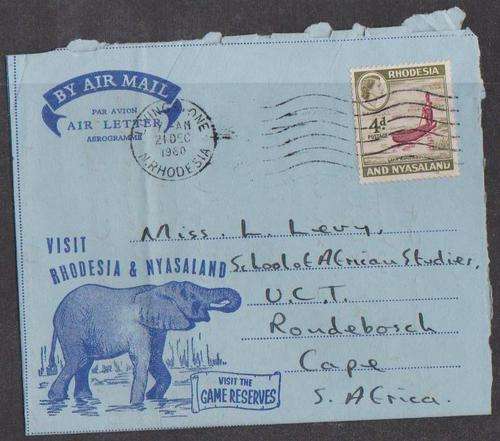 BY AIR MAIL
PAR AVION
AIR LETTER
AEROGRAMME
21 DEC
1960
N. RHODESIA
RHODESIA
4d
POSTAGE
AND NYASALAND
Miss. L. Levy,
School of African Studies,
U.C.T.
Rondebosch
Cape
S. Africa.
VISIT
RHODESIA & NYASALAND
VISIT THE
GAME RESERVES